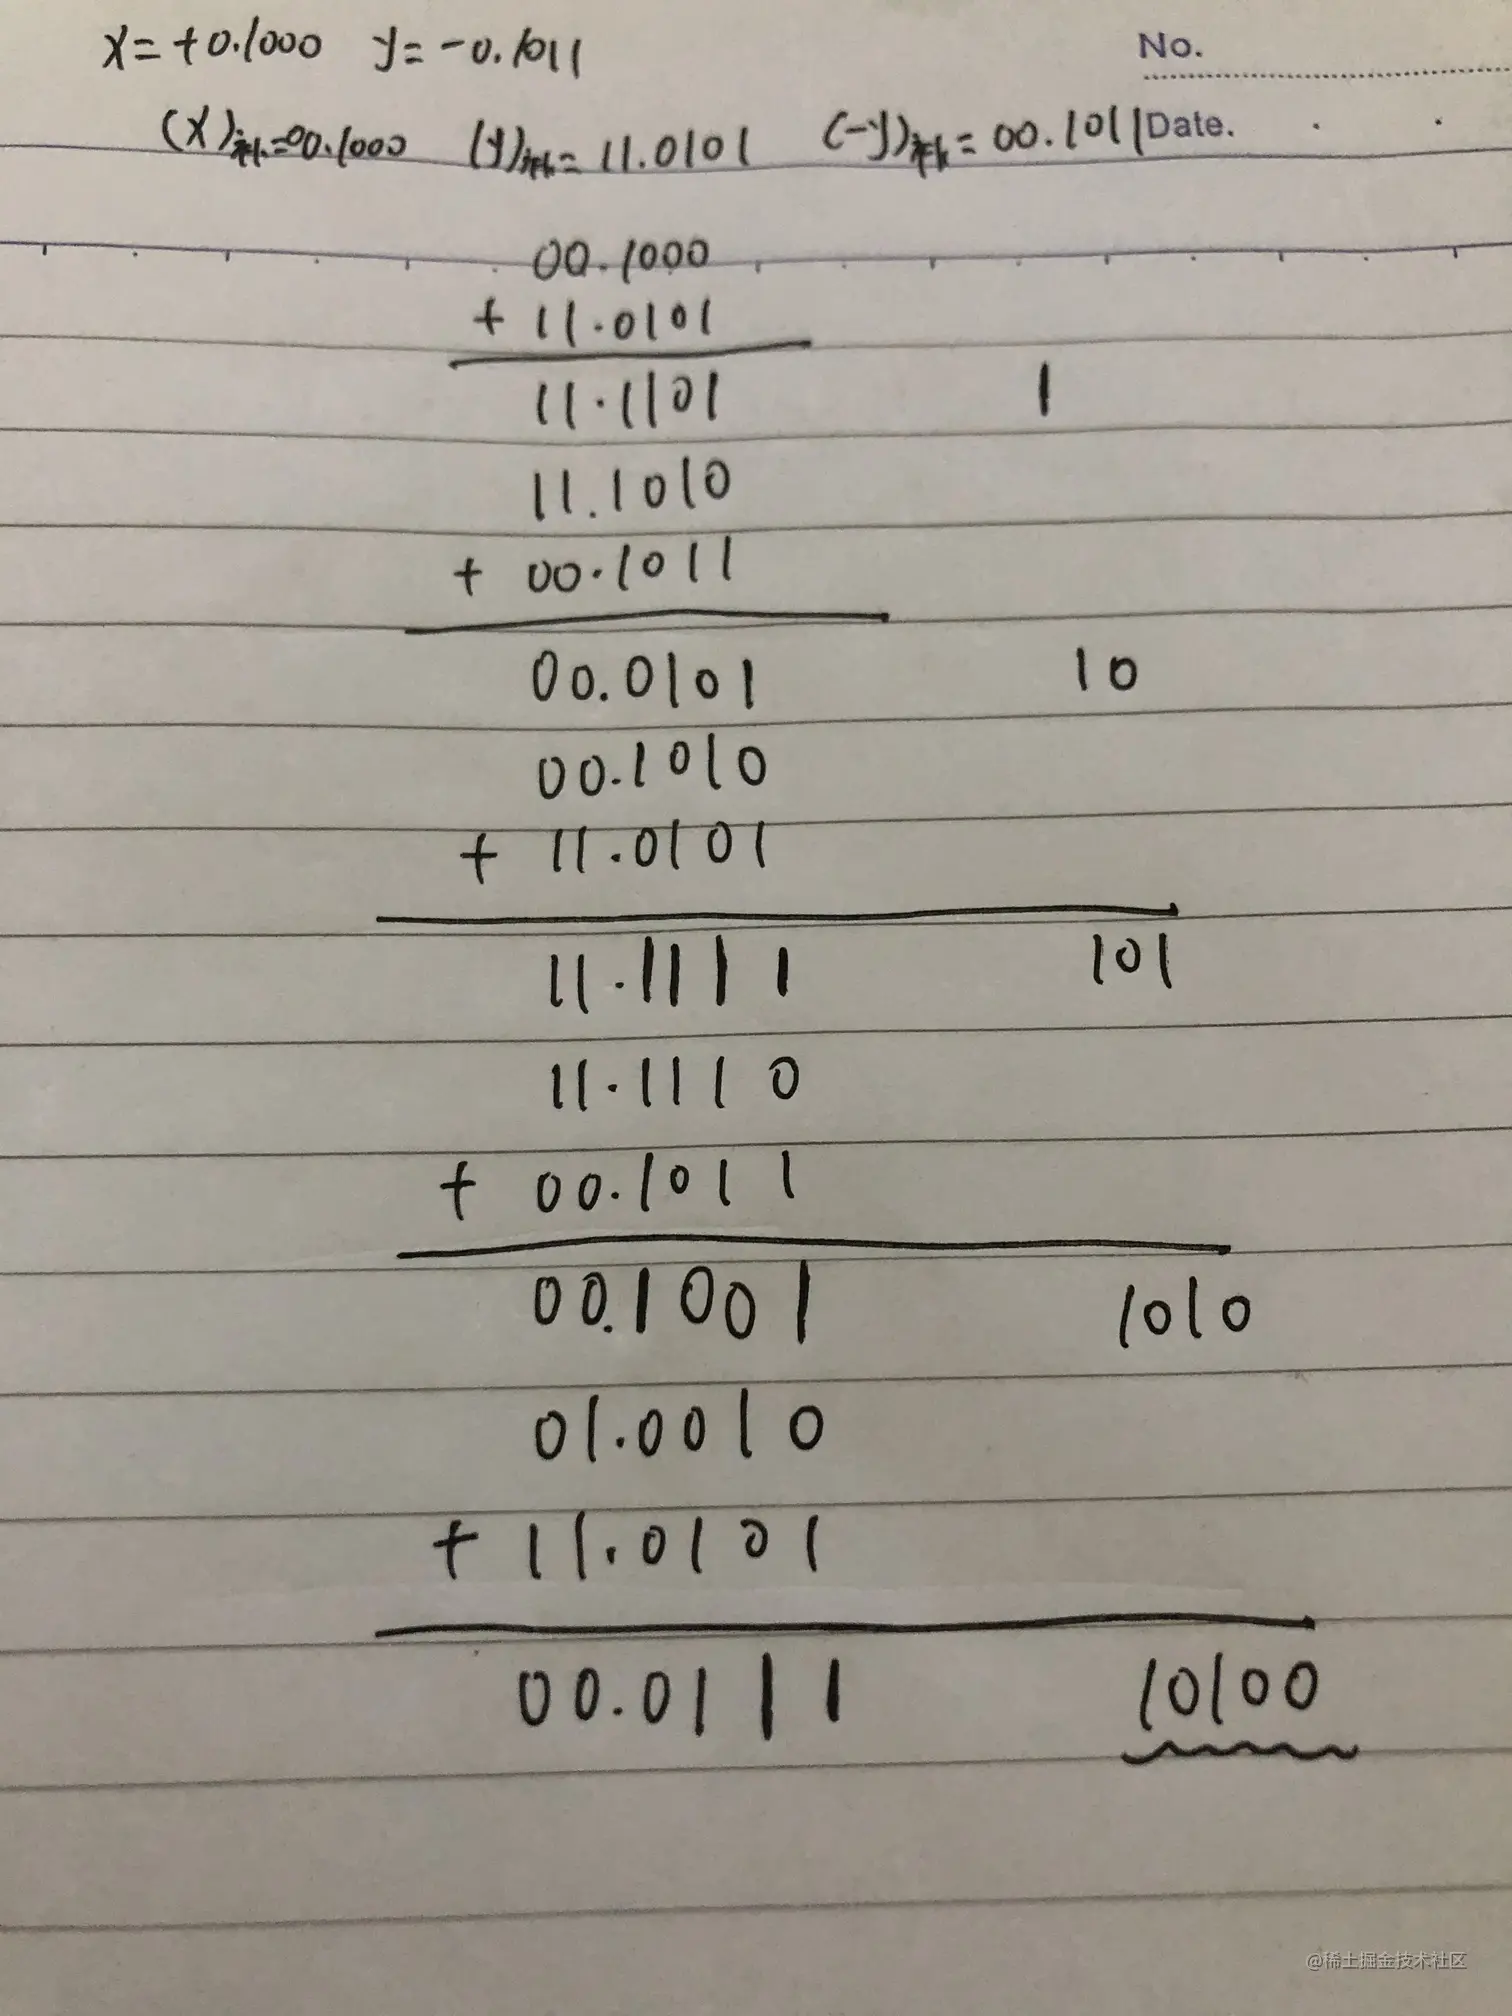 x=+0.1000 y=-0.1011
No.
(x)补=00.1000 (y)补=11.0101 (-y)补=00.1011
Date.
00.1000
+ 11.0101
11.1101 1
11.1010
+ 00.1011
00.0101 10
00.1010
+ 11.0101
11.1111 101
11.1110
+ 00.1011
00.1001 1010
01.0010
+ 11.0101
00.0111 10100
@稀土掘金技术社区